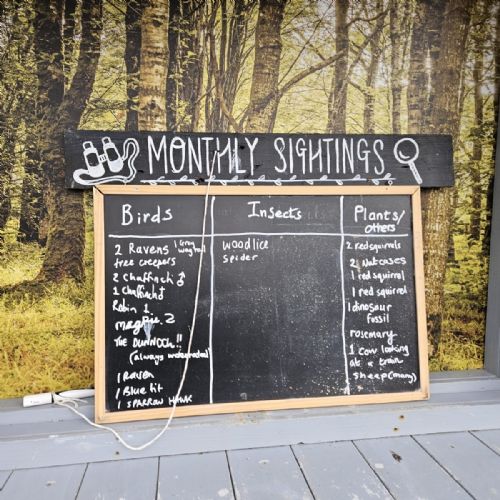 MONTHLY SIGHTINGS
Birds
2 Ravens 1 Grey wagtail
tree creepers
2 Chaffinch ♂
1 Chaffinch ♂
Robin 1
magpie 2
THE DUNNOCK!!
(always underrated)
1 Raven
1 Blue tit
1 SPARROW HAWK
Insects
woodlice
spider
Plants/
others
2 red squirrels
2 Nutcases
1 red squirrel
1 red squirrel
1 dinosaur
fossil
rosemary
1 cow looking
at a train
sheep (many)